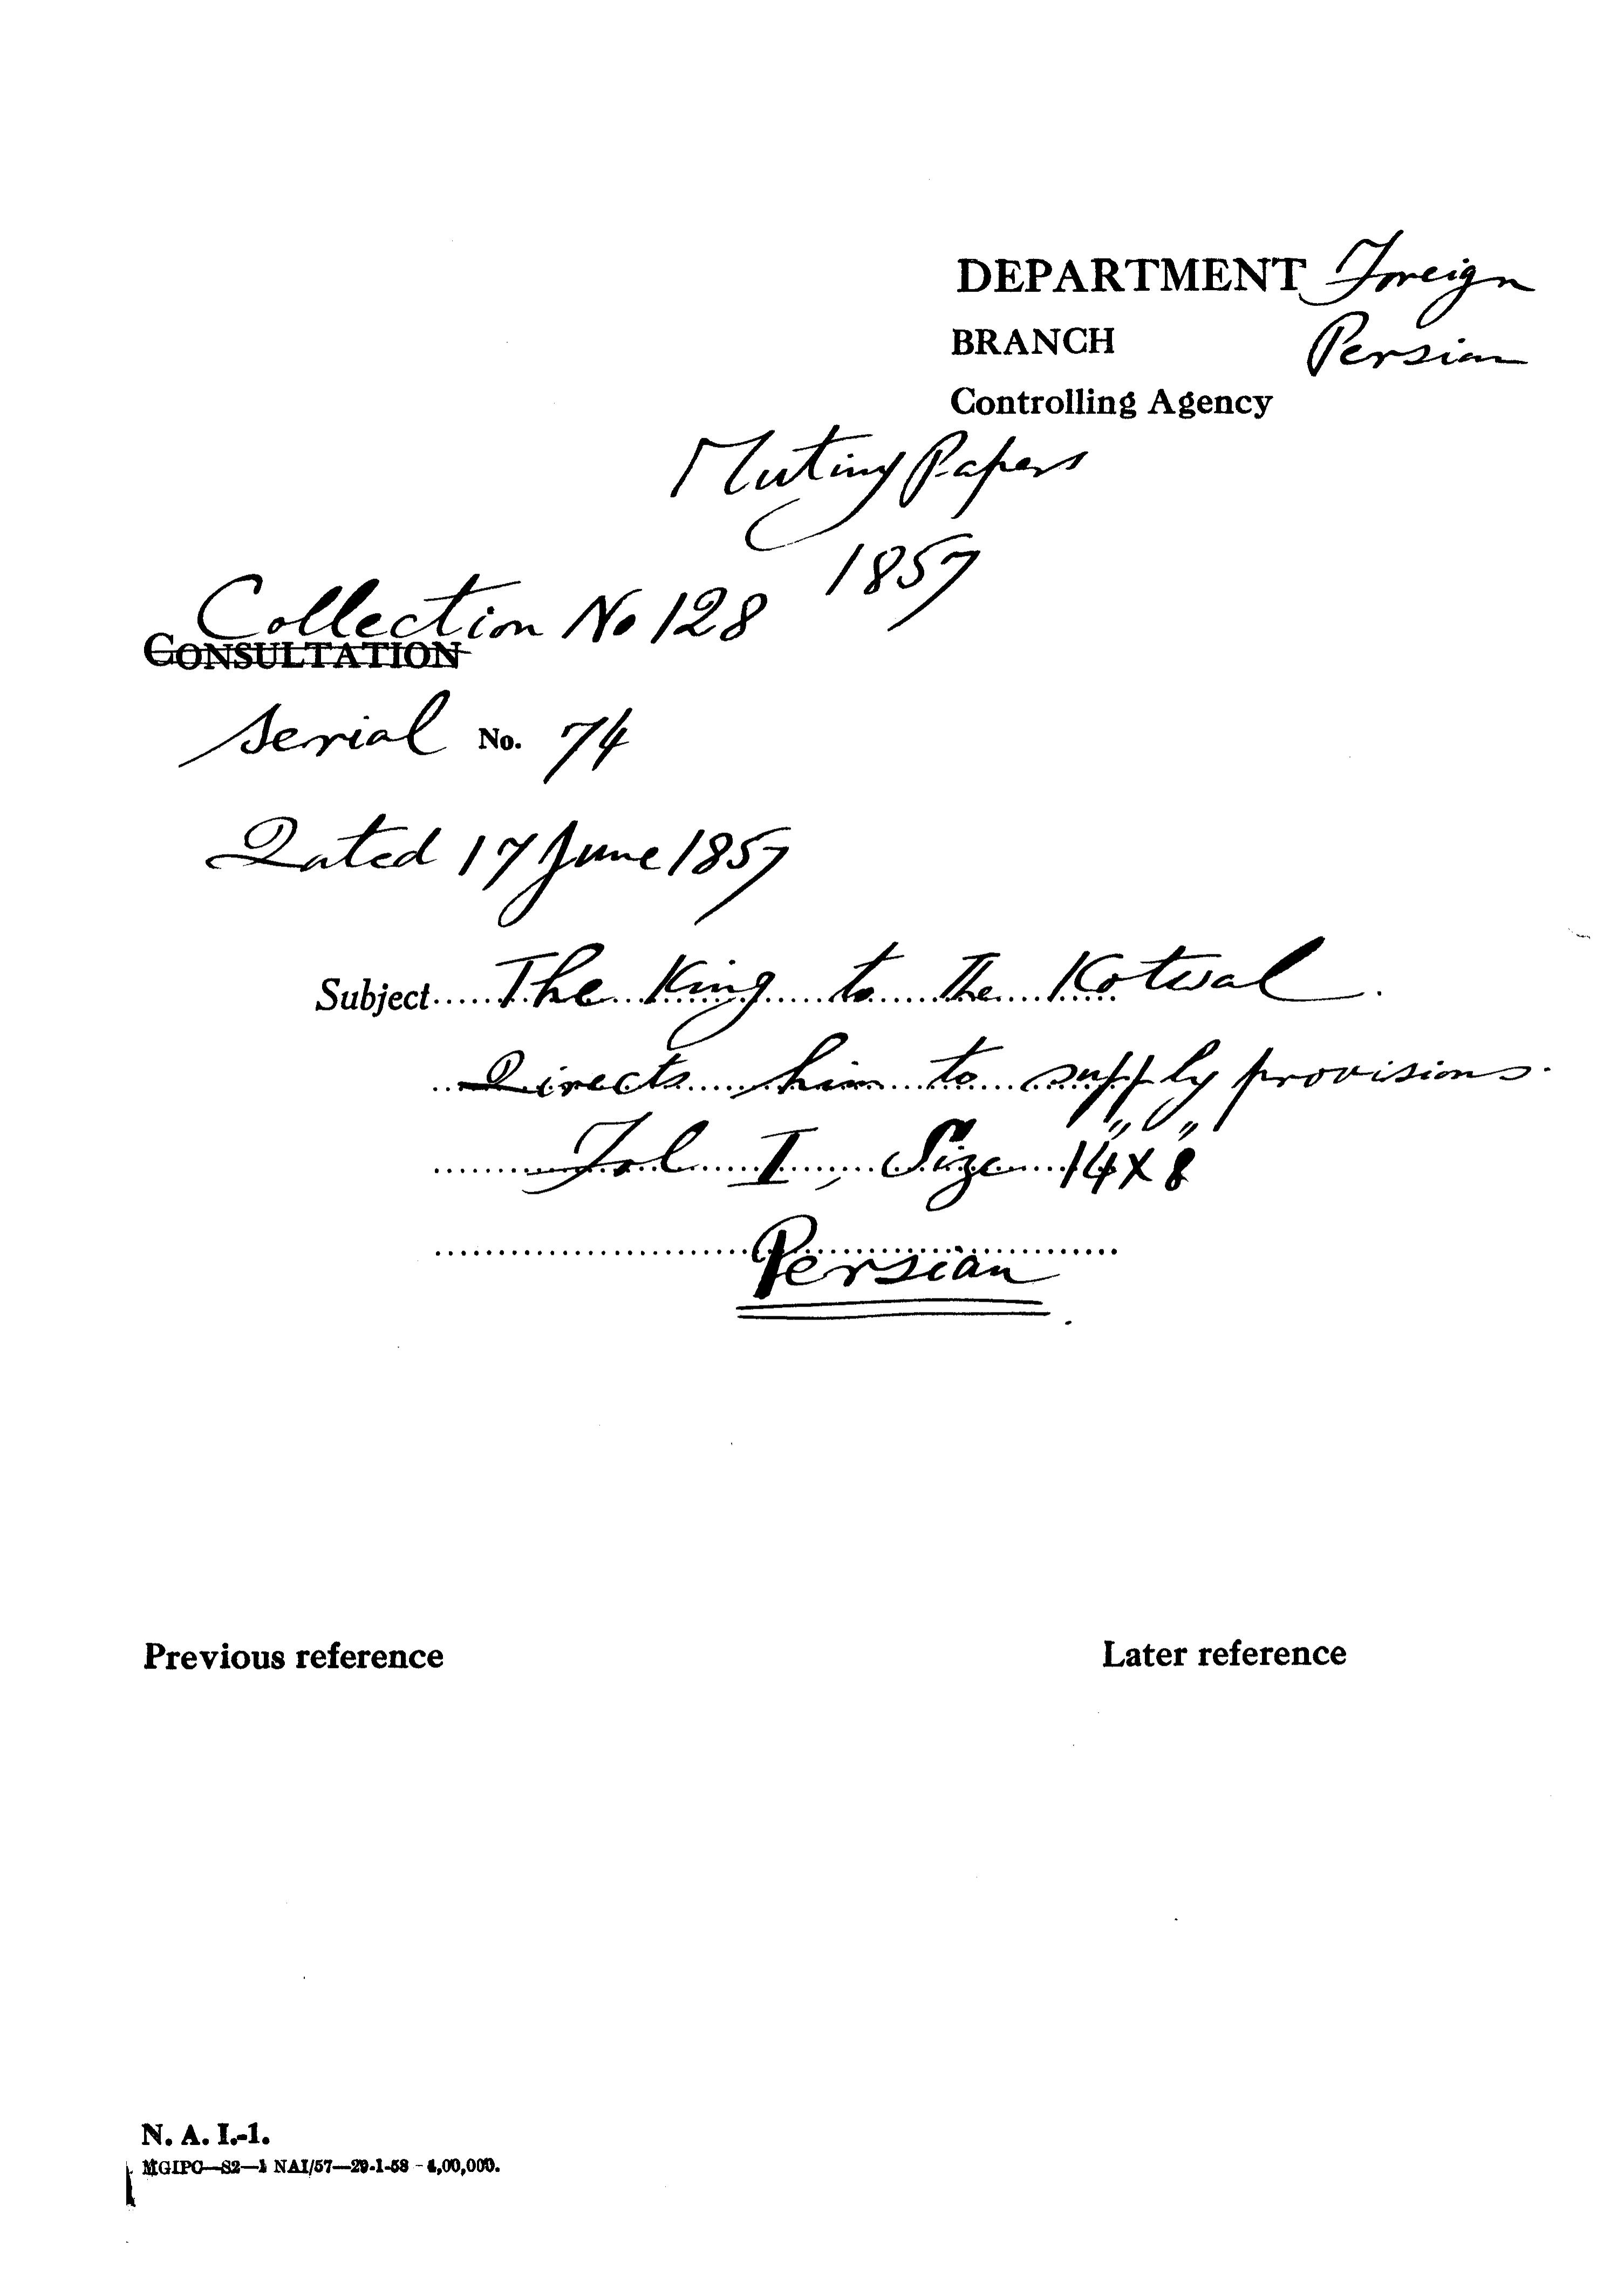 DEPARTMENT Foreign
BRANCH Persian
Controlling Agency
Mutiny Papers
1857
Collection No 128
CONSULTATION
Serial No. 74
Dated 17 June 1857
Subject The King to the Kotwal.
Directs him to supply provisions.
Fol I, Size 14" x 8"
Persian
Previous reference
Later reference
N. A. I.-1.
MGIPC—S2—1 NAI/57—29-1-58—4,00,000.